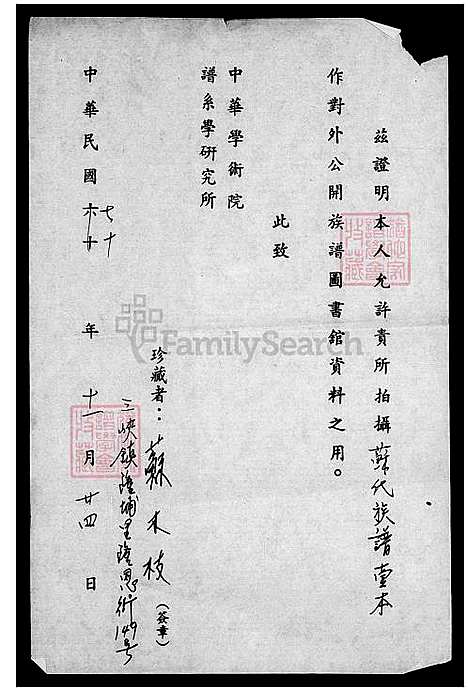 茲證明本人允許貴所拍攝蘇代族譜壹本
作對外公開族譜圖書館資料之用。
此致
中華學術院
譜系學研究所
珍藏者：蘇木枝（簽章）
三峽鎮隆埔里隆恩街149号
中華民國七十年十一月廿四日
FamilySearch